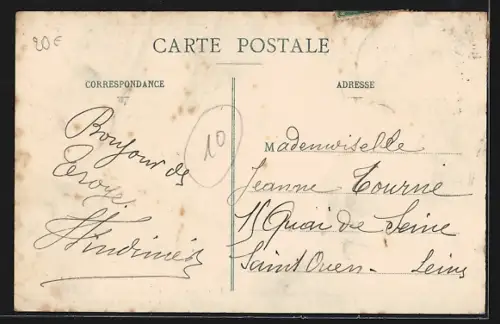 20€
CARTE POSTALE
CORRESPONDANCE
ADRESSE
Bonjour de
10
Mademoiselle
Jeanne Tourne
15 Quai de Seine
Saint Ouen - Seine